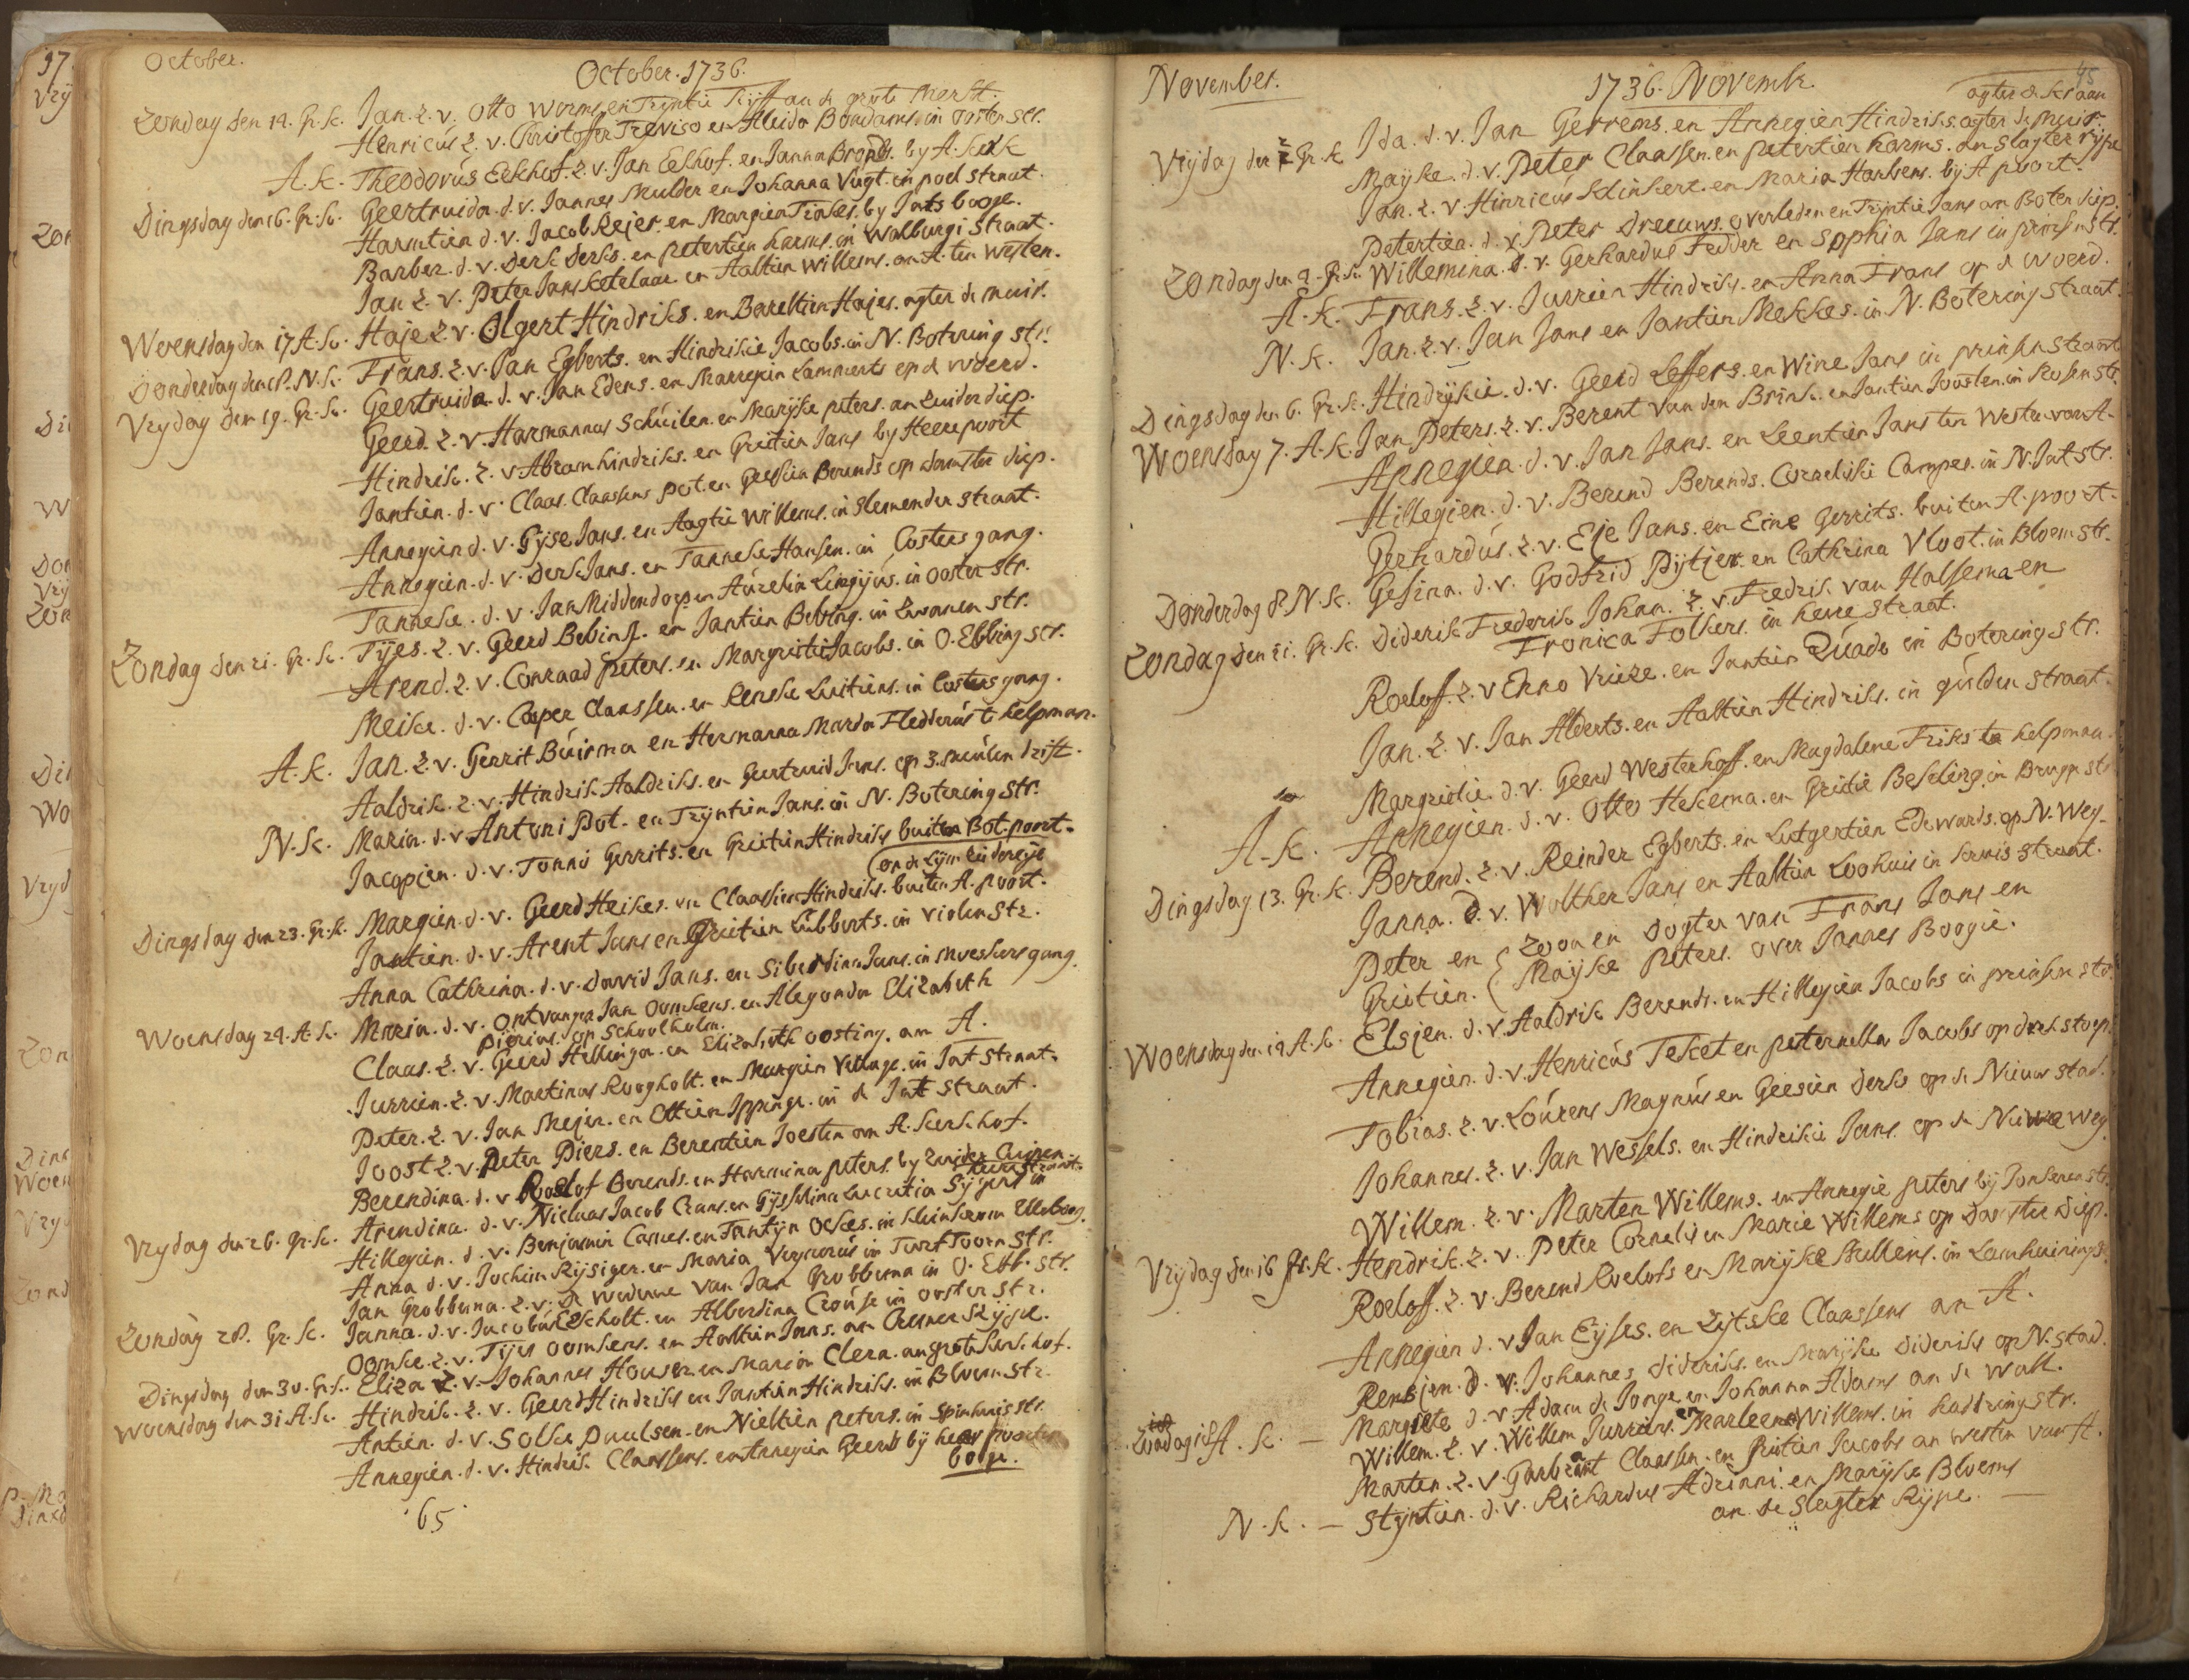 October.
October. 1736.
Zondag den 14. Gr. k. Jan. z. v. Otto Worms en Tryntie
Henricús z. v. Christoffer Treviso en Aleida Bondams. in ooster str.
A. k. Theodorús Eekhof. z. v. Jan Eekhof. en Janna Brands. by A. kerk
Dingsdag den 16. Gr. k. Geertruida. d. v. Jannes Mulder en Johanna Vúgt. in poel straat.
Harmtien d. v. Jacob Rejer. en Margien by Jats boge.
Barber. d. v. Derk Derks. en petertien harms. in Walburgi straat.
Jan z. v. Peter Jans ketelaar en Aaltien Willems. an A. ten westen.
Woensdag den 17 A. k. Haje z. v. Olgert Hindriks. en Bareltien Hajes. agter de muir.
Donderdag den 18. N. k. Frans. z. v. Jan Egberts. en Hindrikie Jacobs. in N. Botering str.
Vrydag den 19. Gr. k. Geertruida. d. v. Jan Edens. en Lammerts op d woerd.
Geerd. z. v. Harmannus Schúilen. en Marijke peters. an Zuider diep.
Hindrik. z. v. Abram hindriks. en Grietien Jans by Heerepoort
Jantien. d. v. Claas Claassens pot. en Geessien Berends op damster diep.
Annegien d. v. Gijse Jans. en Aagtie Willems. in slemender straat.
Annegien. d. v. Derk Jans. en Tanneke Hansen. in Costers gang.
Tanneke. d. v. Jan Middendorp en Aúrelia in ooster str.
Zondag den 21. Gr. k. Tijes. z. v. Geerd Bebing. en Jantien Bebing. in Zwanen str.
Arend. z. v. Conraad peters. en Margrietie Jacobs. in O. Ebbing str.
Meike. d. v. Casper Claassen. en Renske Luitiens. in Costers gang.
A. k. Jan. z. v. Gerrit Búirma en Hermanna Marda Fledderús te helpman.
Aaldrik. z. v. Hindrik Aaldriks. en Geertruid Jans. op 3. múlen drift.
N. k. Maria. d. v. Antoni Pot. en Tryntien Jans. in N. Botering str.
Jacopien. d. v. Tonnis Gerrits. en Grietien Hindriks buiten Bot. poort.
Dingsdag den 23. Gr. k. Margien. d. v. Geerd Heikes. en Claassien Hindriks. buiten A. poort.
Jantien. d. v. Arent Jans en Grietien Lúbberts. in violen str.
Anna Cathrina. d. v. David Jans. en Siberdina Jans. in gang.
Woensdag 24. A. k. Maria. d. v. ontvanger Jan Oomkens. en Alegonda Elizabeth
op Schoolholm.
Claas. z. v. Geerd Hellinga. en Elizabeth oosting. an A.
Jurrien. z. v. Martinus Roogholt. en Margien Vellage. in Jat straat.
Peter. z. v. Jan Mejer. en Ettien Ippinge. in de Jat straat.
Joost z. v. Peter Piers. en Berentien Joesten an A. kerk hof.
Berendina. d. v. Roelof Berends. en Harmina peters. by Zuider
Vrydag den 26. Gr. k. Arendina. d. v. Nicluas Jacob Crans. en Gijsselina Lucretia Sijpens in
Hillegien. d. v. Benjamin Carnes. en Tantijn Ockes. in
Anna d. v. Jochim Rijsiger. en Maria in Turf Toorn str.
Jan Grobbema. z. v. De weduwe van Jan Grobbema in O. Ebb. str.
Zondag 28. Gr. k. Janna. d. v. Jacobús Escholt. en Alberdina Croúse in ooster str.
Oomke. z. v. Tijes oomkens. en Aaltien Jans. an
Dingsdag den 30. Gr. k. Eliza z. v. Johannes Houser en Maria Clera. an grote kerk. hof.
Woensdag den 31. A. k. Hindrik. z. v. Geerd Hindriks en Jantien Hindriks. in Bloem str.
Antien. d. v. Solke Paulsen. en Nieltien peters. in spinhuis str.
Annegien. d. v. Hindrik Claassens. en Annegien Geerds bij heer poorten
boge.
65
November.
1736. Novemb.
45
agter de kraan
Vrijdag den 2 Gr. k Ida. d. v. Jan Gerrems. en Annegien Hindriks. agter de muir.
Mayke. d. v. Peter Claassen. en petertien harms. an slagter rype
Jan. z. v. Hinricús klinkert. en Maria Harbers. bij A poort.
Petertien. d. v. Peter Dreeuws. overleden en Tryntie Jans an Boter diep.
Zondag den 4. Gr. k. Willemina. d. v. Gerhardus Fedder en Sophia Jans in prinsen str.
A. k. Frans. z. v. Jurrien Hindriks. en Anna Frans op d woerd.
N. k. Jan. z. v. Jan Jans en Jantien Mekkes. in N. Botering straat.
Dingsdag den 6. Gr. k. Hindrijkie. d. v. Geerd Leffers. en Wine Jans in prinsen straat
Woensdag 7. A. k. Jan Peters. z. v. Berent van den Brink. en Jantien Joosten. in Rosen str.
Annegien. d. v. Jan Jans. en Leentien Jans ten Westen van A.
Hillegien. d. v. Berend Berends. Corneliskie Campes. in N. Jat str.
Gerhardús. z. v. Eje Jans. en Eine Gerrits. buiten A. poort.
Donderdag 8 N. k. Gesina. d. v. Godfrid Pijtjer. en Cathrina Vloot. in Bloem str.
Zondag den 11. Gr. k. Diderik Frederik Johan. z. v. Fredrik van Halsema en
Fronica Folkers in heere straat.
Roeloff. z. v Enno Vrieze. en Jantien Qúade in Botering str.
Jan. z. v. Jan Alberts. en Aaltien Hindriks. in gúlden straat.
Margrietie. d. v. Geerd Westerhoff. en Magdalene Friks te helpman.
A. k. Annegien. d. v. Otto Hekema. en Grietie Beseling. in Brugg. str.
Dingsdag 13. Gr. k. Berend. z. v. Reinder Egberts. en Lutgertien Edewards. op N. Weg.
Janna. d. v. Wolther Jans en Aaltien Loohuis in kruis straat.
Peter en { zoon en dogter van Frans Jans en
Grietien. { Maijke Peters. over Jannes Boogie.
Woensdag den 14 A. k. Elsjen. d. v. Aaldrik Berends. en Hillegien Jacobs in prinsen str.
Annegien. d. v. Henricús Teket en peternella Jacobs op
Tobias. z. v. Loúrens Magnús en Geesien Derks op de Nieuw stad.
Johannes. z. v. Jan Wessels. en Hindrikie Jans. op de Nieuwe weg
Willem. z. v. Marten Willems. en Annegie peters bij Jonkeren str.
Vrijdag den 16 Gr. k. Hendrik. z. v. Peter Cornelis en Marie Willems op Damster Diep.
Roeloff. z. v. Berend Roelofs en Marijke
Annegien d. v Jan Eyses. en Zijtske Claassens an A.
Rensjen. d. v. Johannes Dideriks. en Marijke Dideriks op N. stad.
Zondag 18 A. k. — Margriete d. v. Adam de Jonge en Johanna Adams an de wall.
Willem. z. v. Willem Jurriens. en Marleene Willems. in
Marten. z. v. Garbrant Claassen. en Grietien Jacobs an westen van A.
N. k. — Stijntien. d. v. Richardus Adriani. en Marijke Bloems
an de Slagter Rijpe. —